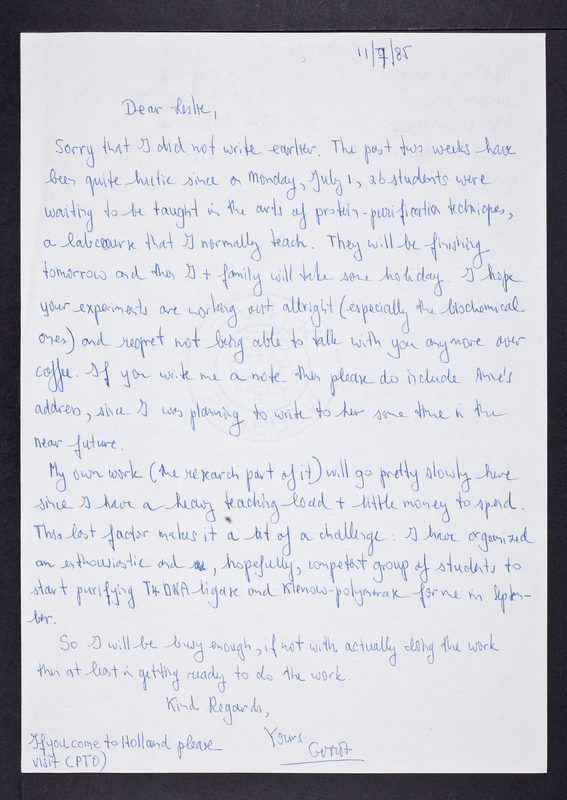 11/7/85
Dear Leslie,
Sorry that I did not write earlier. The past two weeks have
been quite hectic since on Monday, July 1, 26 students were
waiting to be taught in the arts of protein-purification techniques,
a labcourse that I normally teach. They will be finishing
tomorrow and then I + family will take some holiday. I hope
your experiments are working out allright (especially the biochemical
ones) and regret not being able to talk with you anymore over
coffee. If you write me a note then please do include Anne's
address, since I was planning to write to her some time in the
near future.
My own work (the research part of it) will go pretty slowly here
since I have a heavy teaching load + little money to spend.
This last factor makes it a bit of a challenge: I have organized
an enthousiastic and , hopefully, competent group of students to
start purifying T4 DNA-ligase and Klenow-polymerase for me in Septem-
ber.
So I will be busy enough, if not with actually doing the work
then at least in getting ready to do the work.
Kind Regards,
Yours
If you come to Holland please
visit (PTO)